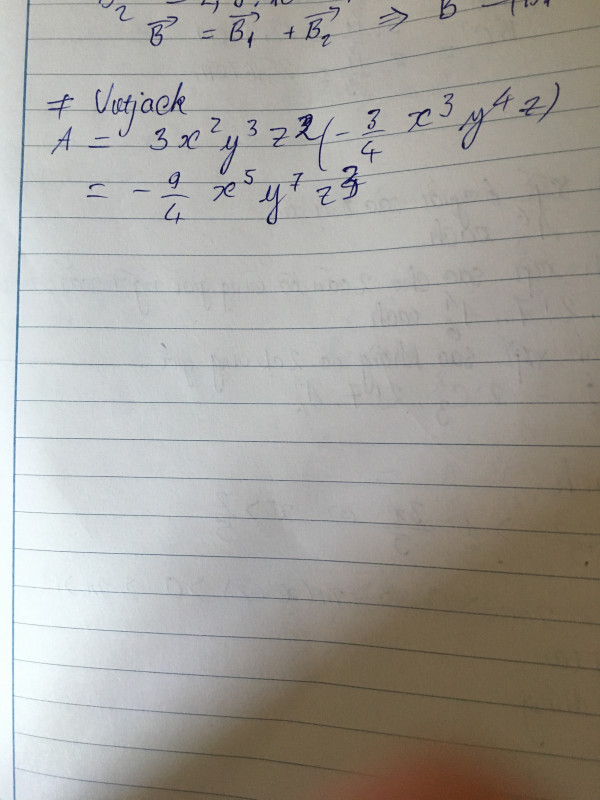 B⃗ = B⃗₁ + B⃗₂ ⇒ B
# Votjack
A = 3x²y³z²(-3/4 x³y⁴z)
= -9/4 x⁵y⁷z³